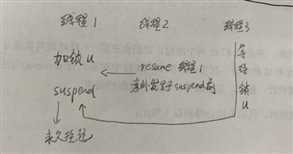 线程1 线程2 线程3
加锁u
resume 线程1
意外发生于suspend前
suspend
等待锁u
永久挂起